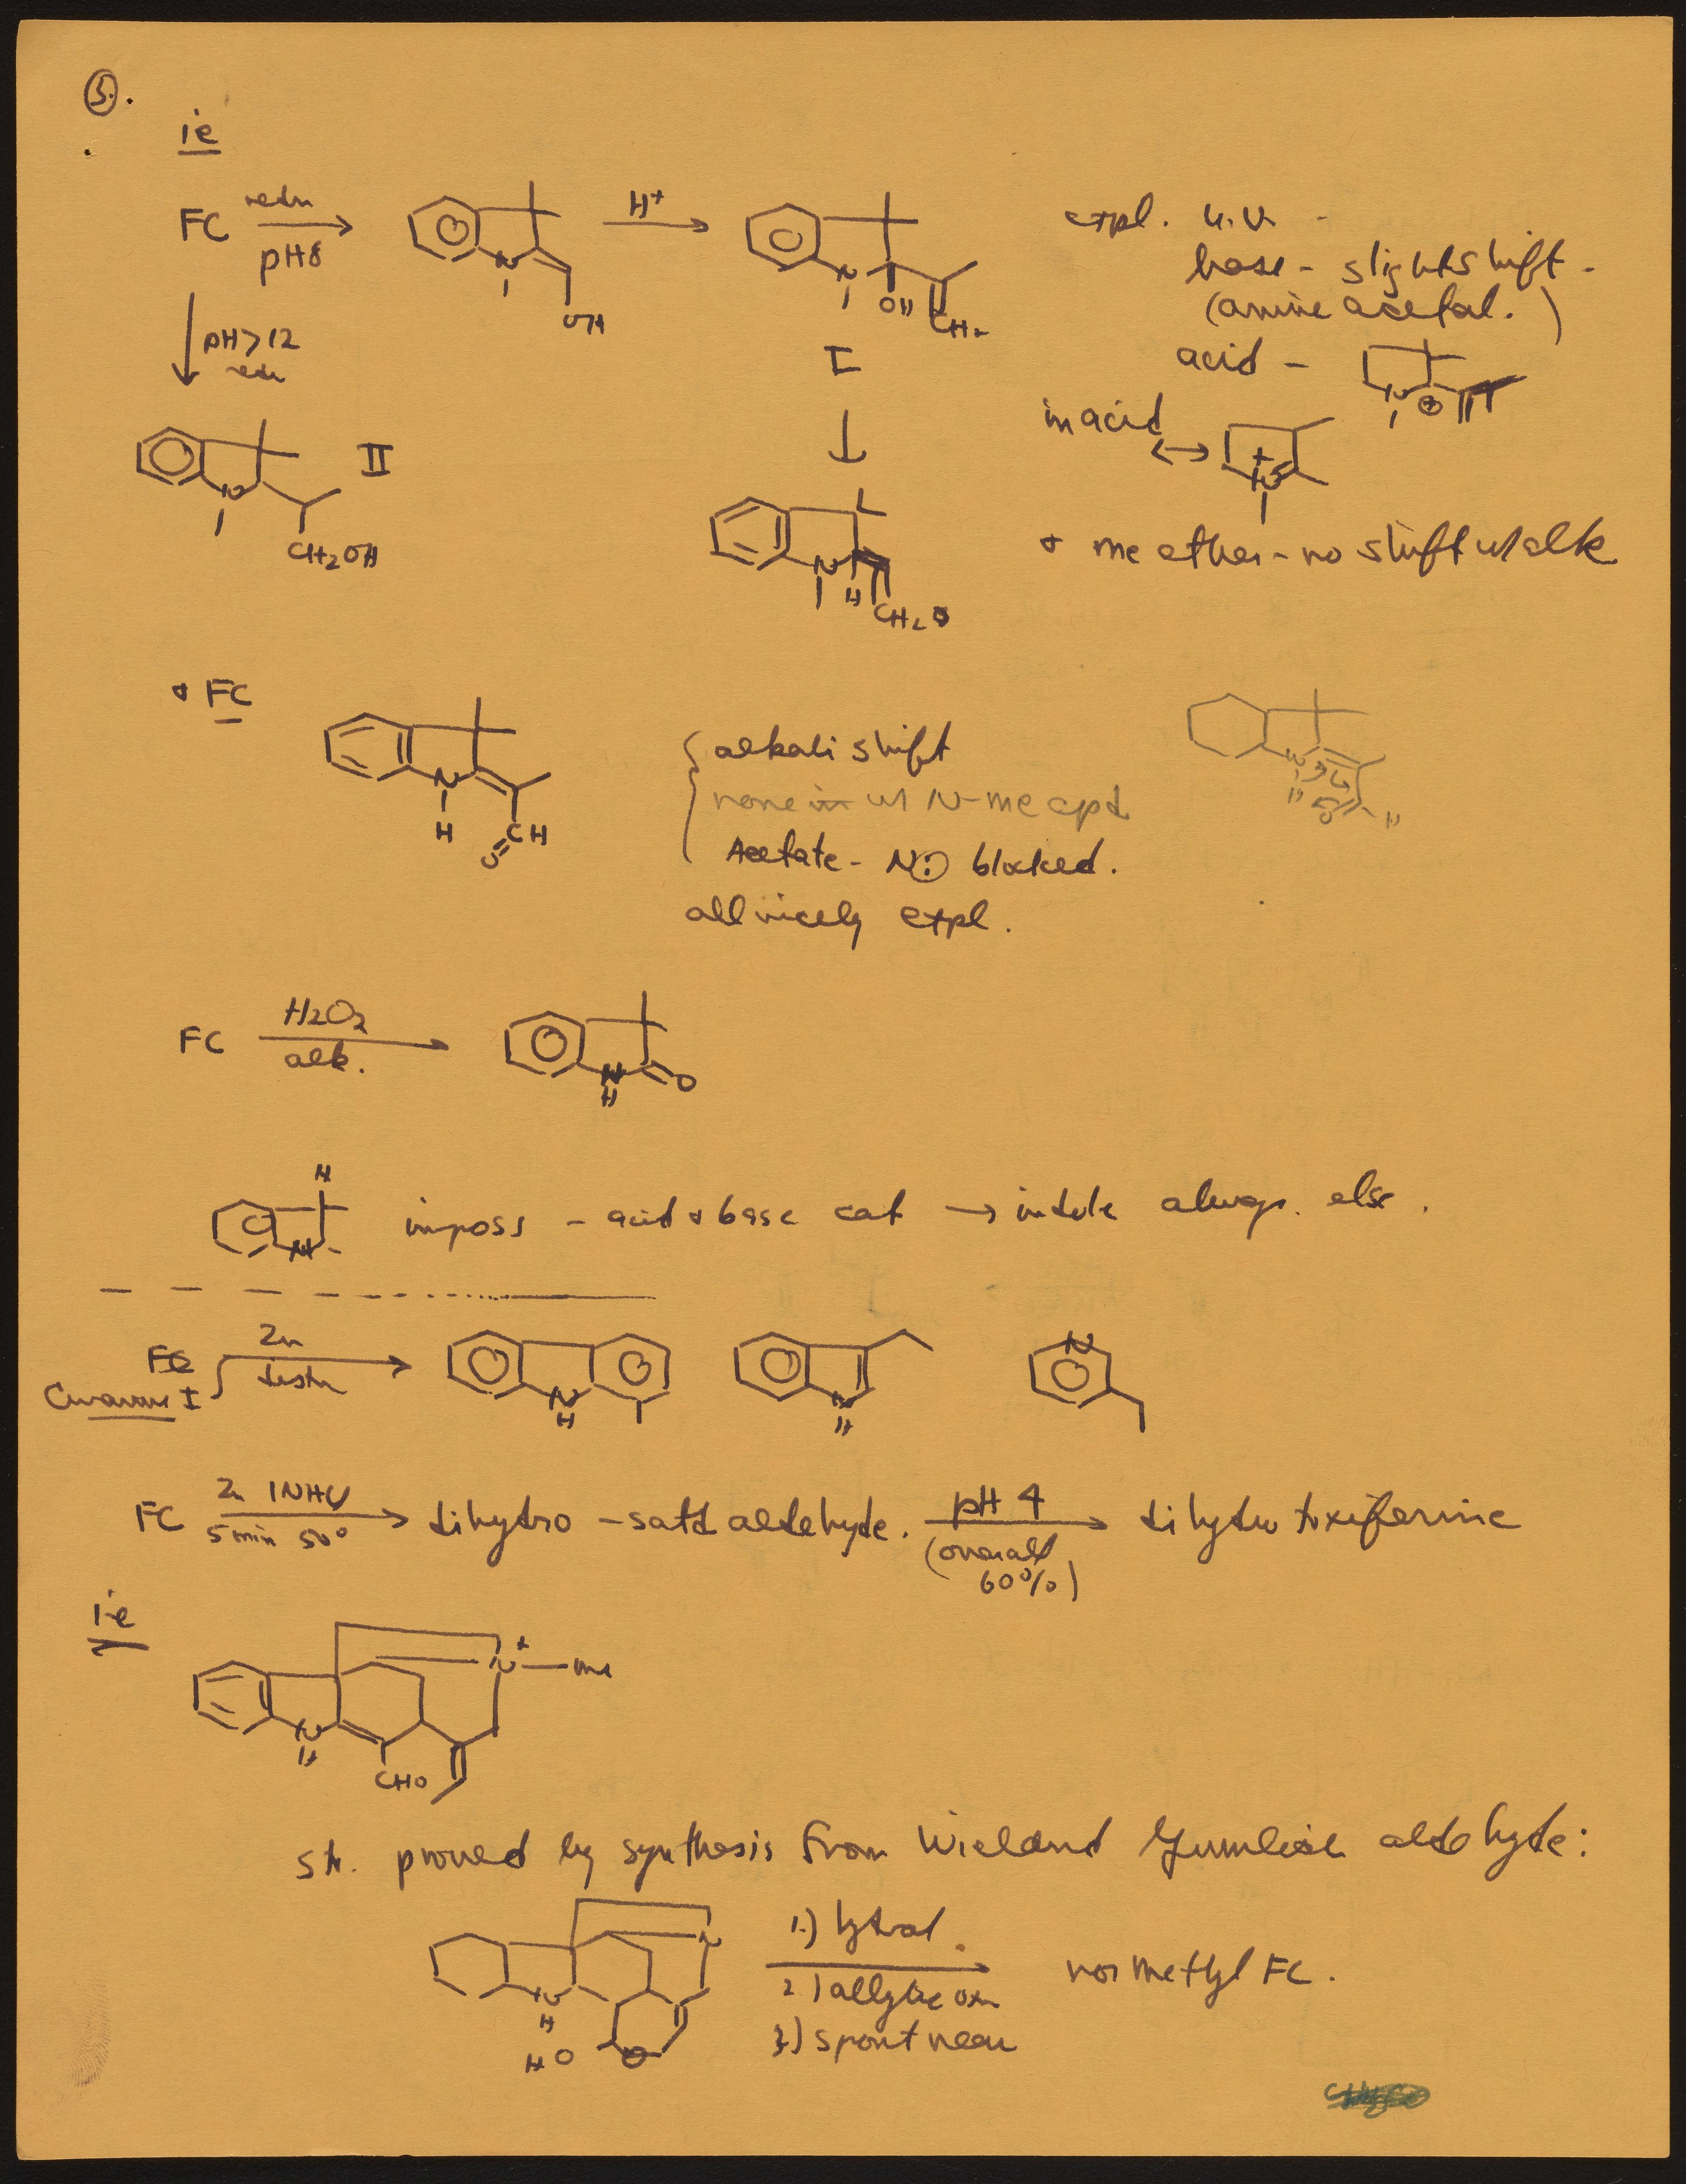 5.
ie
FC redn pH8 → N OH H+ → N OH CH2
I
expl. u.v. -
base - slight shift -
(amine acetal.)
acid - N ⊕
in acid ↔ +N
+ me ether - no shift w/ alk
↓ pH>12
redn
N CH2OH
II
↓
N H CH2
+ FC
N H CH O
alkali shift
none in w/ N-me cpd
Acetate - N: blocked.
all nicely expl.
FC H2O2 alk. → N H O
H N imposs - acid + base cat → indole always else.
FC
Curarine I
Zn distn → N H N H N
FC Zn 1NHCl 5 min 50° → dihydro - satd aldehyde. pH 4 (overall 60%) → dihydro toxiferine
ie
N+ — me
N H
CHO
str. proved by synthesis from Wieland Gumlich aldehyde:
N
N H
HO O
1.)
2) allylic oxn
3) spont rearr
nor methyl FC.